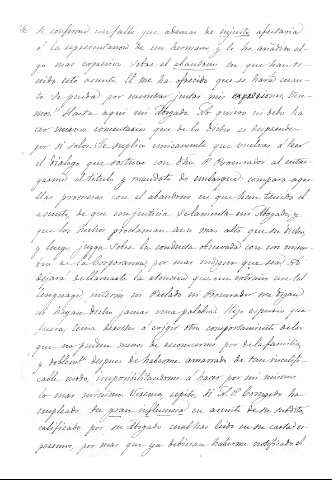 se conforma con falle que ademas de injusto afectaria
á la representacion de un hermano, y lo he añadido al-
go mas expresivo sobre el abandono en que han te-
nido este asunto. El me ha ofrecido que se hará cuan-
to se pueda por encontrar juntas mis expresiones; vere-
mos." Hasta aqui mi Abogado. Yo quiero ni debo ha-
cer nuevos comentarios que de lo dicho se desprenden
por si solos. Le suplico unicamente que vuelva á leer
el dialogo que sostuve con dho P. Procurador al entre-
garme el titulo y mandato de embarque: compare aque-
llas promesas con el abandono en que han tenido el
asunto, de que con justicia se lamenta mi Abogado, y
que los hechos proclaman aun mas alto que su dicho,
y luego juzgue sobre la conducta observada con un miem-
bro de la Corporacion, por mas indigno que sea. No
dejará de llamarle la atencion que un extraño use tal
lenguage, interin ni Prelado ni Procurador me digan
ni hayan dicho jamas una palabra!
fuera, tenia derecho á exigir otro comportamiento de los
que no pueden menos de reconocerme por de la familia,
y doblemte despues de haberme amarrado de tan inesplí-
cable modo, imposibilitandome á hacer por mi mismo
lo mas minimo. Buena, repito, si D. P. Corregedo ha
empleado su gran influencia en asunto de su subdito,
calificado por su Abogado cual has leido en su carta de
pesames, por mas que ya debieran haberme notificado el